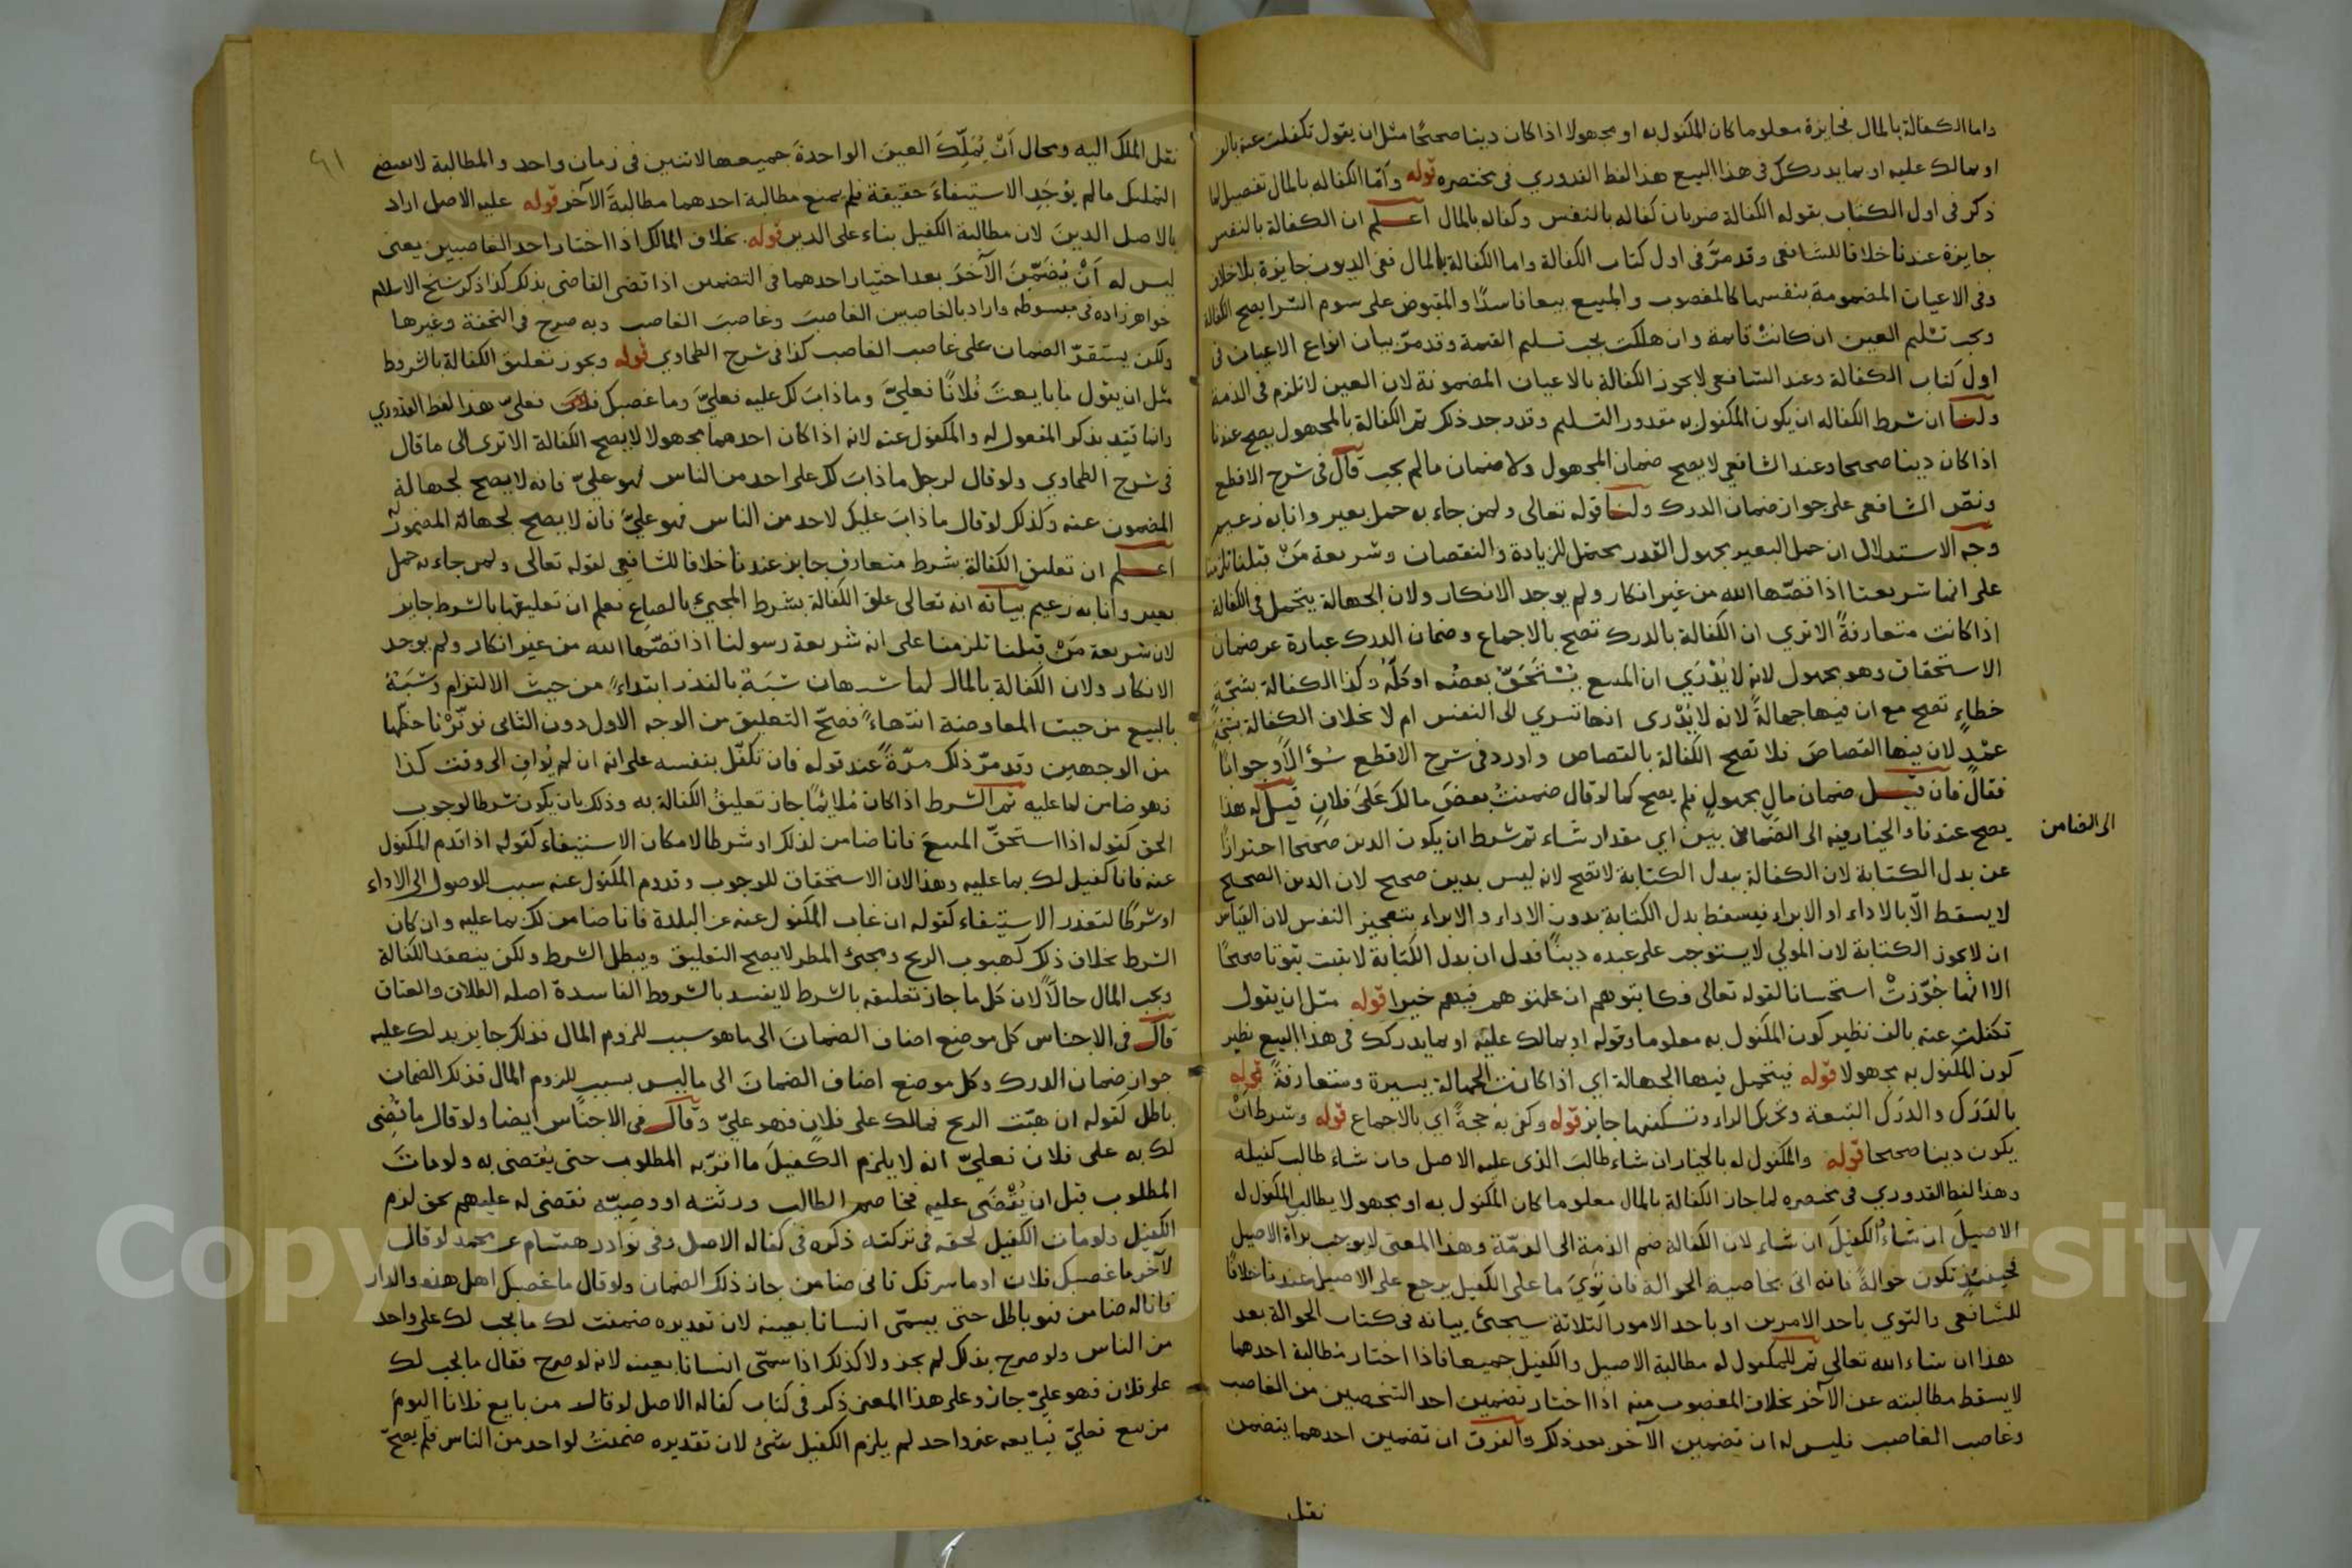 واما الكفالة بالمال فجايزة معلوما كان المكفول به او مجهولا اذا كان دينا صحيحًا مثل ان يقول تكفلت عنه بالف
او بمالك عليه او بما يدركك فى هذا البيع هذا لفظ القدوري فى مختصره قوله وأمّا الكفاله بالمال تفصيل لما
ذكر فى اول الكتاب بقوله الكفالة ضربان كفاله بالنفس وكفاله بالمال اعلم ان الكفالة بالنفس
جايزة عندنا خلافا للشافعى وقد مرَّ فى اول كتاب الكفالة واما الكفالة بالمال ففى الديون جايزة بلا خلاف
وفى الاعيان المضمومة بنفسها كالمغصوب والمبيع بيعا فاسدًا والمقبوض على سوم الشرا يصح الكفالة
ويجب تسليم العين ان كانتْ قايمة وان هلكت يجب تسليم القيمة وقد مرّ بيان انواع الاعيان فى
اول كتاب الكفالة وعند الشافعى لا يجوز الكفالة بالاعيان المضمونة لان العين لا تلزم فى الذمة
ولنا ان شرط الكفاله ان يكون المكفول به مقدور التسليم وقد وجد ذلك ثم الكفالة بالمجهول يصح عندنا
اذا كان دينا صحيحا وعند الشافعى لا يصح ضمان المجهول ولا ضمان مالم يجب قال فى شرح الاقطع
ونصّ الشافعى على جواز ضمان الدرك ولنا قوله تعالى ولمن جاء به حمل بعير وانا به زعيم
وجه الاستدلال ان حمل البعير مجهول القدر يحتمل للزيادة والنقصان وشريعة مَنْ قبلنا تلزمنا
على انها شريعتنا اذا قصّها الله من غير انكار ولم يوجد الانكار ولان الجهالة يتحمل فى الكفالة
اذا كانت متعارفةً الا ترى ان الكفالة بالدرك تصح بالاجماع وضمان الدرك عبارة عن ضمان
الاستحقاق وهو مجهول لانه لا يُدْرَي ان المبيع يُسْتَحَقّ بعضُه او كلّه وكذا الكفالة بشجّةِ
خطاءٍ تصح مع ان فيها جهالةً لانه لا يُدْرى انها تسري الى النفس ام لا بخلاف الكفالة بشجّةِ
عمْدٍ لان فيها القصاصَ فلا تصح الكفالة بالقصاص واورد فى شرح الاقطع سُؤالًا وجوابًا
فقال فان قيل ضمان مالٍ مجهولٍ فلم يصح كما لو قال ضمنتُ بعضَ مالك عَلىَ فلانٍ قيل له هذا
يصح عندنا والخيار فيه الى الضمان بين اي مقدار شاء ثم شرط ان يكون الدين صحيحا احترازًا
عن بدل الكتابة لان الكفالة ببدل الكتابة لا تصح لانه ليس بدين صحيح لان الدين الصحيح
لا يسقط الّا بالاداء او الابراء فيسقط بدل الكتابة بدون الاداء والابراء بتعجيز النفس لان القياس
ان لا يجوز الكتابة لان المولي لا يستوجب على عبده دينًا فدل ان بدل الكتابة لا يثبت ثبوتا صحيحًا
الا انها جُوّزتْ استحسانا لقوله تعالى فكاتبوهم ان علمتم فيهم خيرا قوله مثل ان يقول
تكفلت عنه بالف نظير كون المكفول به معلوما وقوله او بمالك عليه او بما يدركك فى هذا البيع نظير
كون المكفول به مجهولا قوله فيتحمل فيها الجهالة اي اذا كانت الجهالة يسيرة ومتعارفةً قوله
بالدَرَك والدَرَك التبعة وتحريك الراء وتسكينها جايز قوله وكفى به حجةً اي بالاجماع قوله وشرط انْ
يكون دينا صحيحا قوله والمكفول له بالخيار ان شاء طالبَ الذى عليه الاصل وان شاء طالب كفيله
وهذا لفظ القدوري فى مختصره لما جاز الكفالة بالمال معلوما كان المكفول به او مجهولا يطالب المكفول له
الاصيلَ ان شاء والكفيلَ ان شاء لان الكفالة ضم الذمة الى الذمّة وهذا المعنى لا يوجب براة الاصيل
فحينئذٍ تكون حوالةً فانه اتى بخاصية الحوالة فان تَوِيَ ما على الكفيل يرجع على الاصيل عندنا خلافًا
للشافعى والتوي باحد الامرين او باحد الامور الثلاثة سيجئ بيانه فى كتاب الحوالة بعد
هذا ان شاء الله تعالى ثم للمكفول له مطالبة الاصيل والكفيل جميعا فاذا اختار مطالبة احدهما
لا يسقط مطالبته عن الآخر بخلاف المغصوب منه اذا اختار تضمين احد الشخصين من الغاصب
وغاصب الغاصب فليس له ان تضمين الآخر بعد ذلك والفرق ان تضمين احدهما يتضمن
نقل
الى الضامن
٩١
نقل الملك اليه ومحال اَنْ يُمَلِّكَ العينَ الواحدةَ جميعها لاثنين فى زمان واحد والمطالبة لا تقتضى
التمليك مالم يُوجَدِ الاستيفاءُ حقيقة فلم يمنع مطالبة احدهما مطالبةَ الآخر قوله عليه الاصل اراد
بالاصل الدينَ لان مطالبة الكفيل بناء على الدين قوله بخلاف المالك اذا اختار احد الغاصبين يعنى
ليس له اَنْ يُضَمِّنَ الآخَرَ بعد اختيار احدهما فى التضمين اذا قضى القاضى بذلك كذا ذكر شيخ الاسلام
خواهرزاده فى مبسوطه واراد بالغاصبين الغاصبَ وغاصبَ الغاصب وبه صرح فى التحفة وغيرها
ولكن يستقرّ الضمان على غاصب الغاصب كذا فى شرح الطحاوي قوله ويجوز تعليق الكفالة بالشروط
مثل ان يقول ما بايعتَ فُلانًا فعليَّ وما ذابَ لك عليه فعليَّ وما غصبك فلان فعليّ هذا لفظ القدوري
وانما قيّد بذكر المفعول له والمكفول عنه لانه اذا كان احدهما مجهولا لا يصح الكفالة الا ترى الى ما قال
فى شرح الطحاوي ولو قال لرجل ما ذابَ لك على احد من الناس فهو عليّ فانه لا يصح لجهالة
المضمون عنه وكذلك لو قال ما ذابَ عليك لاحد من الناس فهو عليَّ فانه لا يصح لجهالة المضمون له
اعلم ان تعليق الكفالة بشرط متعارف جايز عندنا خلافا للشافعى لقوله تعالى ولمن جاء به حمل
بعير وانا به زعيم بيانه انه تعالى علق الكفالة بشرط المجئ بالصاع فعلم ان تعليقها بالشرط جايز
لان شريعة مَنْ قبلنا تلزمنا على انه شريعة رسولنا اذا قصّها الله من غير انكار ولم يوجد
الانكار ولان الكفالة بالمال لها شبهان شَبَهٌ بالنذر ابتداءً من حيث الالتزام وشَبَهٌ
بالبيع من حيث المعاوضة انتهاءً فصحّ التعليق من الوجه الاول دون الثانى فوفّرْنا حظّهما
من الوجهين وقد مرّ ذلك مرّةً عند قوله فان تكفّل بنفسه على انه ان لم يُوافِ الى وقت كذا
فهو ضامن لما عليه ثم الشرط اذا كان مُلايُمًا جاز تعليقُ الكفالة به وذلك بان يكون شرطا لوجوب
الحق كقوله اذا استحقّ المبيعَ فانا ضامن لذلك او شرطا لامكان الاستيفاء كقوله اذا قدم المكفول
عنه فانا كفيل لك بما عليه وهذا لان الاستحقاق للوجوب وقدوم المكفول عنه سبب للوصول الى الاداء
او شرطا لتعذر الاستيفاء كقوله ان غاب المكفول عنه عن البلدة فانا ضامن لك بما عليه وان كان
الشرط بخلاف ذلك كهبوب الريح ومجئ المطر لا يصح التعليق ويبطل الشرط ولكن ينعقد الكفالة
ويجب المال حالًا لان كل ما جاز تعليقه بالشرط لا يفسد بالشروط الفاسدة اصله الطلاق والعتاق
قال فى الاجناس كل موضع اضاف الضمانَ الى ما هو سبب للزوم المال فذلك جايز يدلك عليه
جواز ضمان الدرك وكل موضع اضاف الضمانَ الى ما ليس بسبب للزوم المال فذلك الضمان
باطل كقوله ان هبّت الريح فمالك على فلانٍ فهو عليّ وقال فى الاجناس ايضا ولو قال ما قُضِى
لك به على فلان فعليّ انه لا يلزم الكفيلَ ما اقرّ به المطلوب حتى يُقضى به ولو مات
المطلوب قبل ان يُقْضَى عليه فخاصم الطالب ورثته او وصيّه فقضى له عليهم بحق لزم
الكفيل ولو مات الكفيل لحقه فى تركته ذكره فى كفاله الاصل وفى نوادر هشام عن محمد لو قال
لآخر ما غصبك فلان او ما سرقك فانى ضامن جاز ذلك الضمان ولو قال ما غصبك اهل هذه الدار
فانا له ضامن فهو باطل حتى يسمّى انسانا بعينه لان تقديره ضمنت لك ما يجب لك على واحد
من الناس ولو صرح بذلك لم يجز ولا كذلك اذا سمّى انسانا بعينه لانه لو صرح فقال ما يجب لك
على فلان فهو عليّ جاز وعلى هذا المعنى ذكر فى كتاب كفاله الاصل لو قال من بايع فلانا اليومَ
من بيع فعليّ فبايعه غير واحد لم يلزم الكفيل شئ لان تقديره ضمنتُ لواحد من الناس فلم يصحّ
Copyright © King Saud University